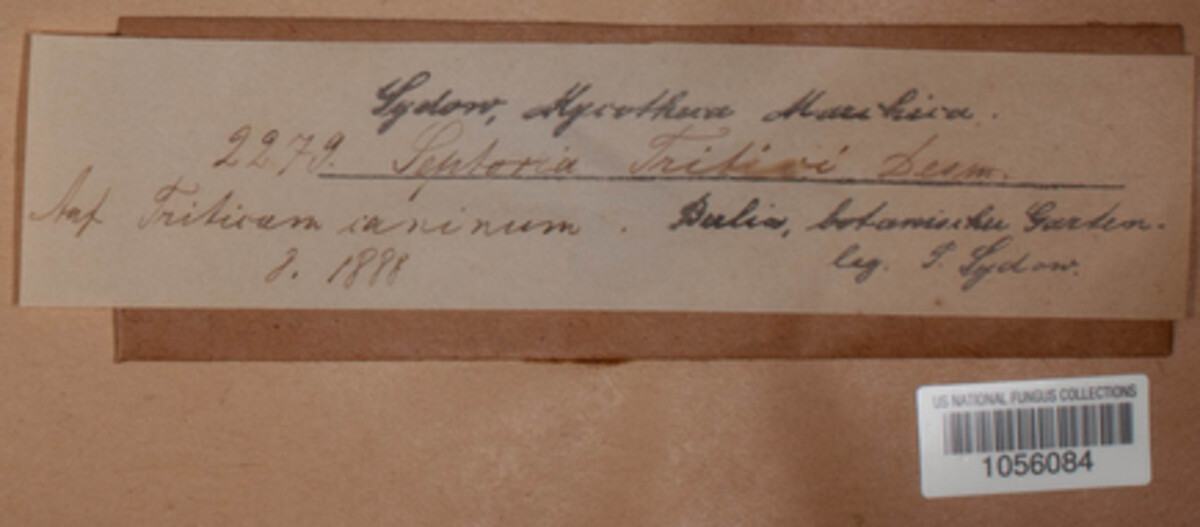 Sydow, Mycotheca Marchica.
2279. Septoria Tritici Desm.
Auf Triticum caninum. Berlin, botanischer Garten.
8. 1888 leg. P. Sydow.
US NATIONAL FUNGUS COLLECTIONS
1056084